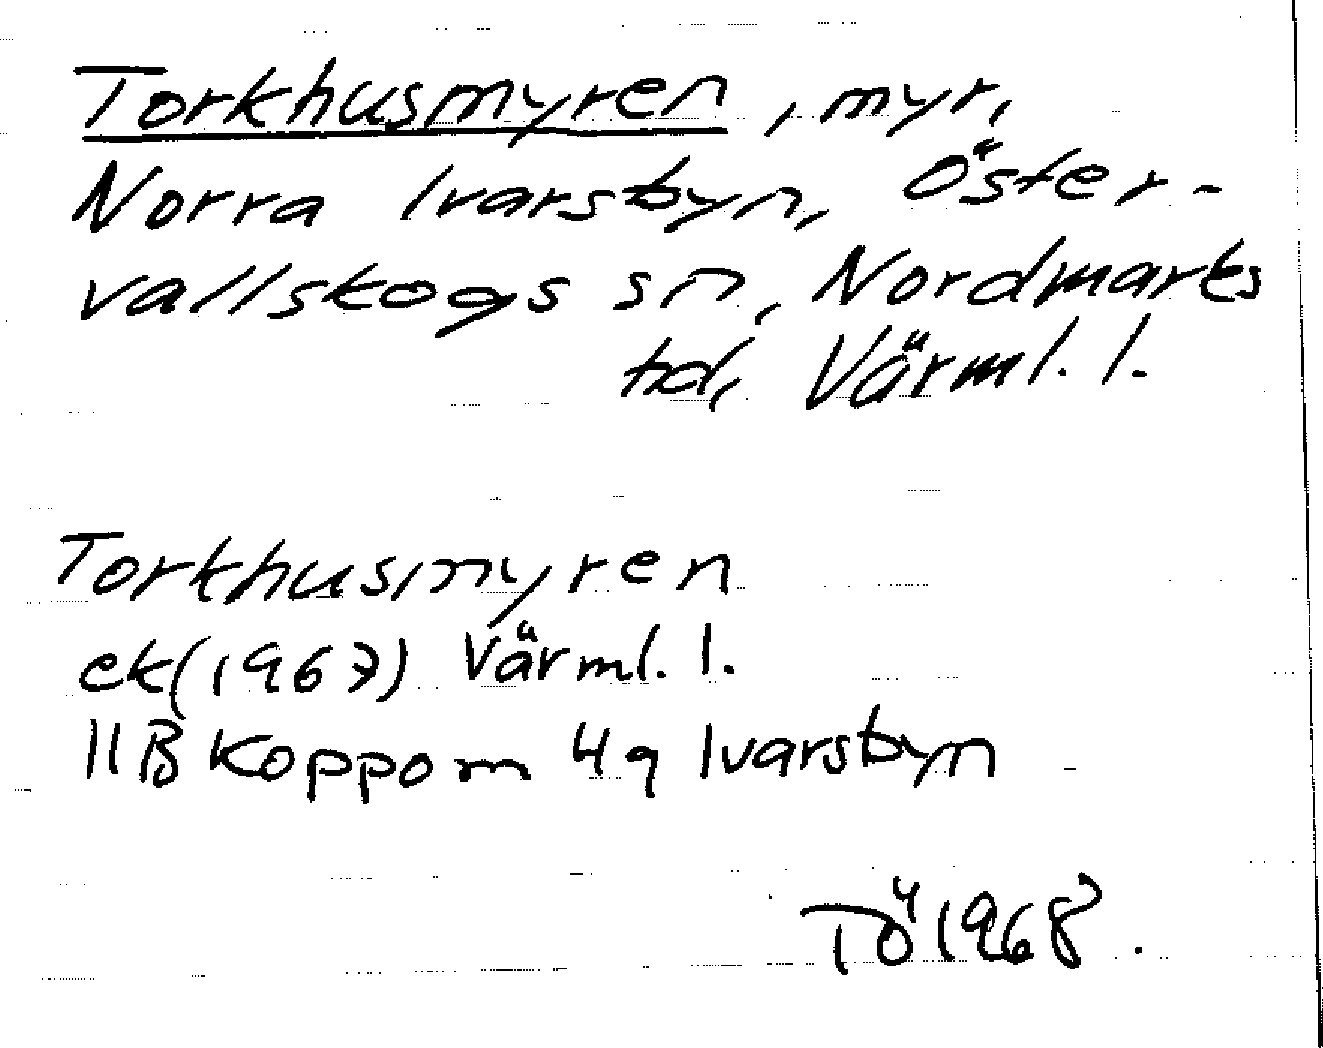 Torkhusmyren, myr,
Norra Ivarsbyn, Öster-
vallskogs sn, Nordmarks
hd, Värml. l.
Torkhusmyren
ek(1967) Värml. l.
11B Koppom 4a Ivarsbyn
TÖ 1968.